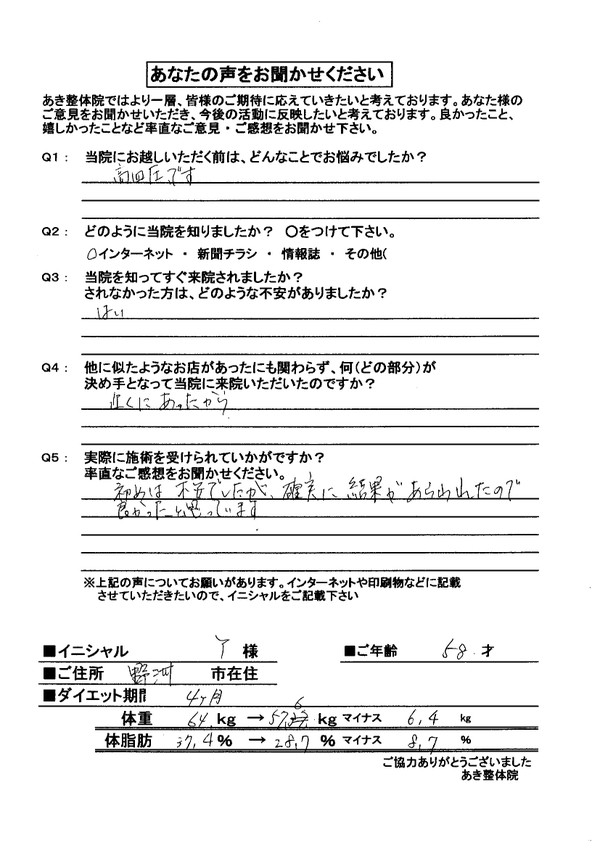 あなたの声をお聞かせください
あき整体院ではより一層、皆様のご期待に応えていきたいと考えております。あなた様の
ご意見をお聞かせいただき、今後の活動に反映したいと考えております。良かったこと、
嬉しかったことなど率直なご意見・ご感想をお聞かせ下さい。
Q1： 当院にお越しいただく前は、どんなことでお悩みでしたか？
高血圧です
Q2： どのように当院を知りましたか？ 〇をつけて下さい。
〇インターネット ・ 新聞チラシ ・ 情報誌 ・ その他(
Q3： 当院を知ってすぐ来院されましたか？
されなかった方は、どのような不安がありましたか？
はい
Q4： 他に似たようなお店があったにも関わらず、何(どの部分)が
決め手となって当院に来院いただいたのですか？
近くにあったから
Q5： 実際に施術を受けられていかがですか？
率直なご感想をお聞かせください。
初めは不安でしたが、確実に結果があらわれたので
良かったと思っています
※上記の声についてお願いがあります。インターネットや印刷物などに記載
させていただきたいので、イニシャルをご記載下さい
■イニシャル Y 様 ■ご年齢 58 才
■ご住所 市在住
■ダイエット期間 4ヶ月
体重 64 kg → 57.6 kg マイナス 6,4 kg
体脂肪 37,4 % → 28,7 % マイナス 8,7 %
ご協力ありがとうございました
あき整体院